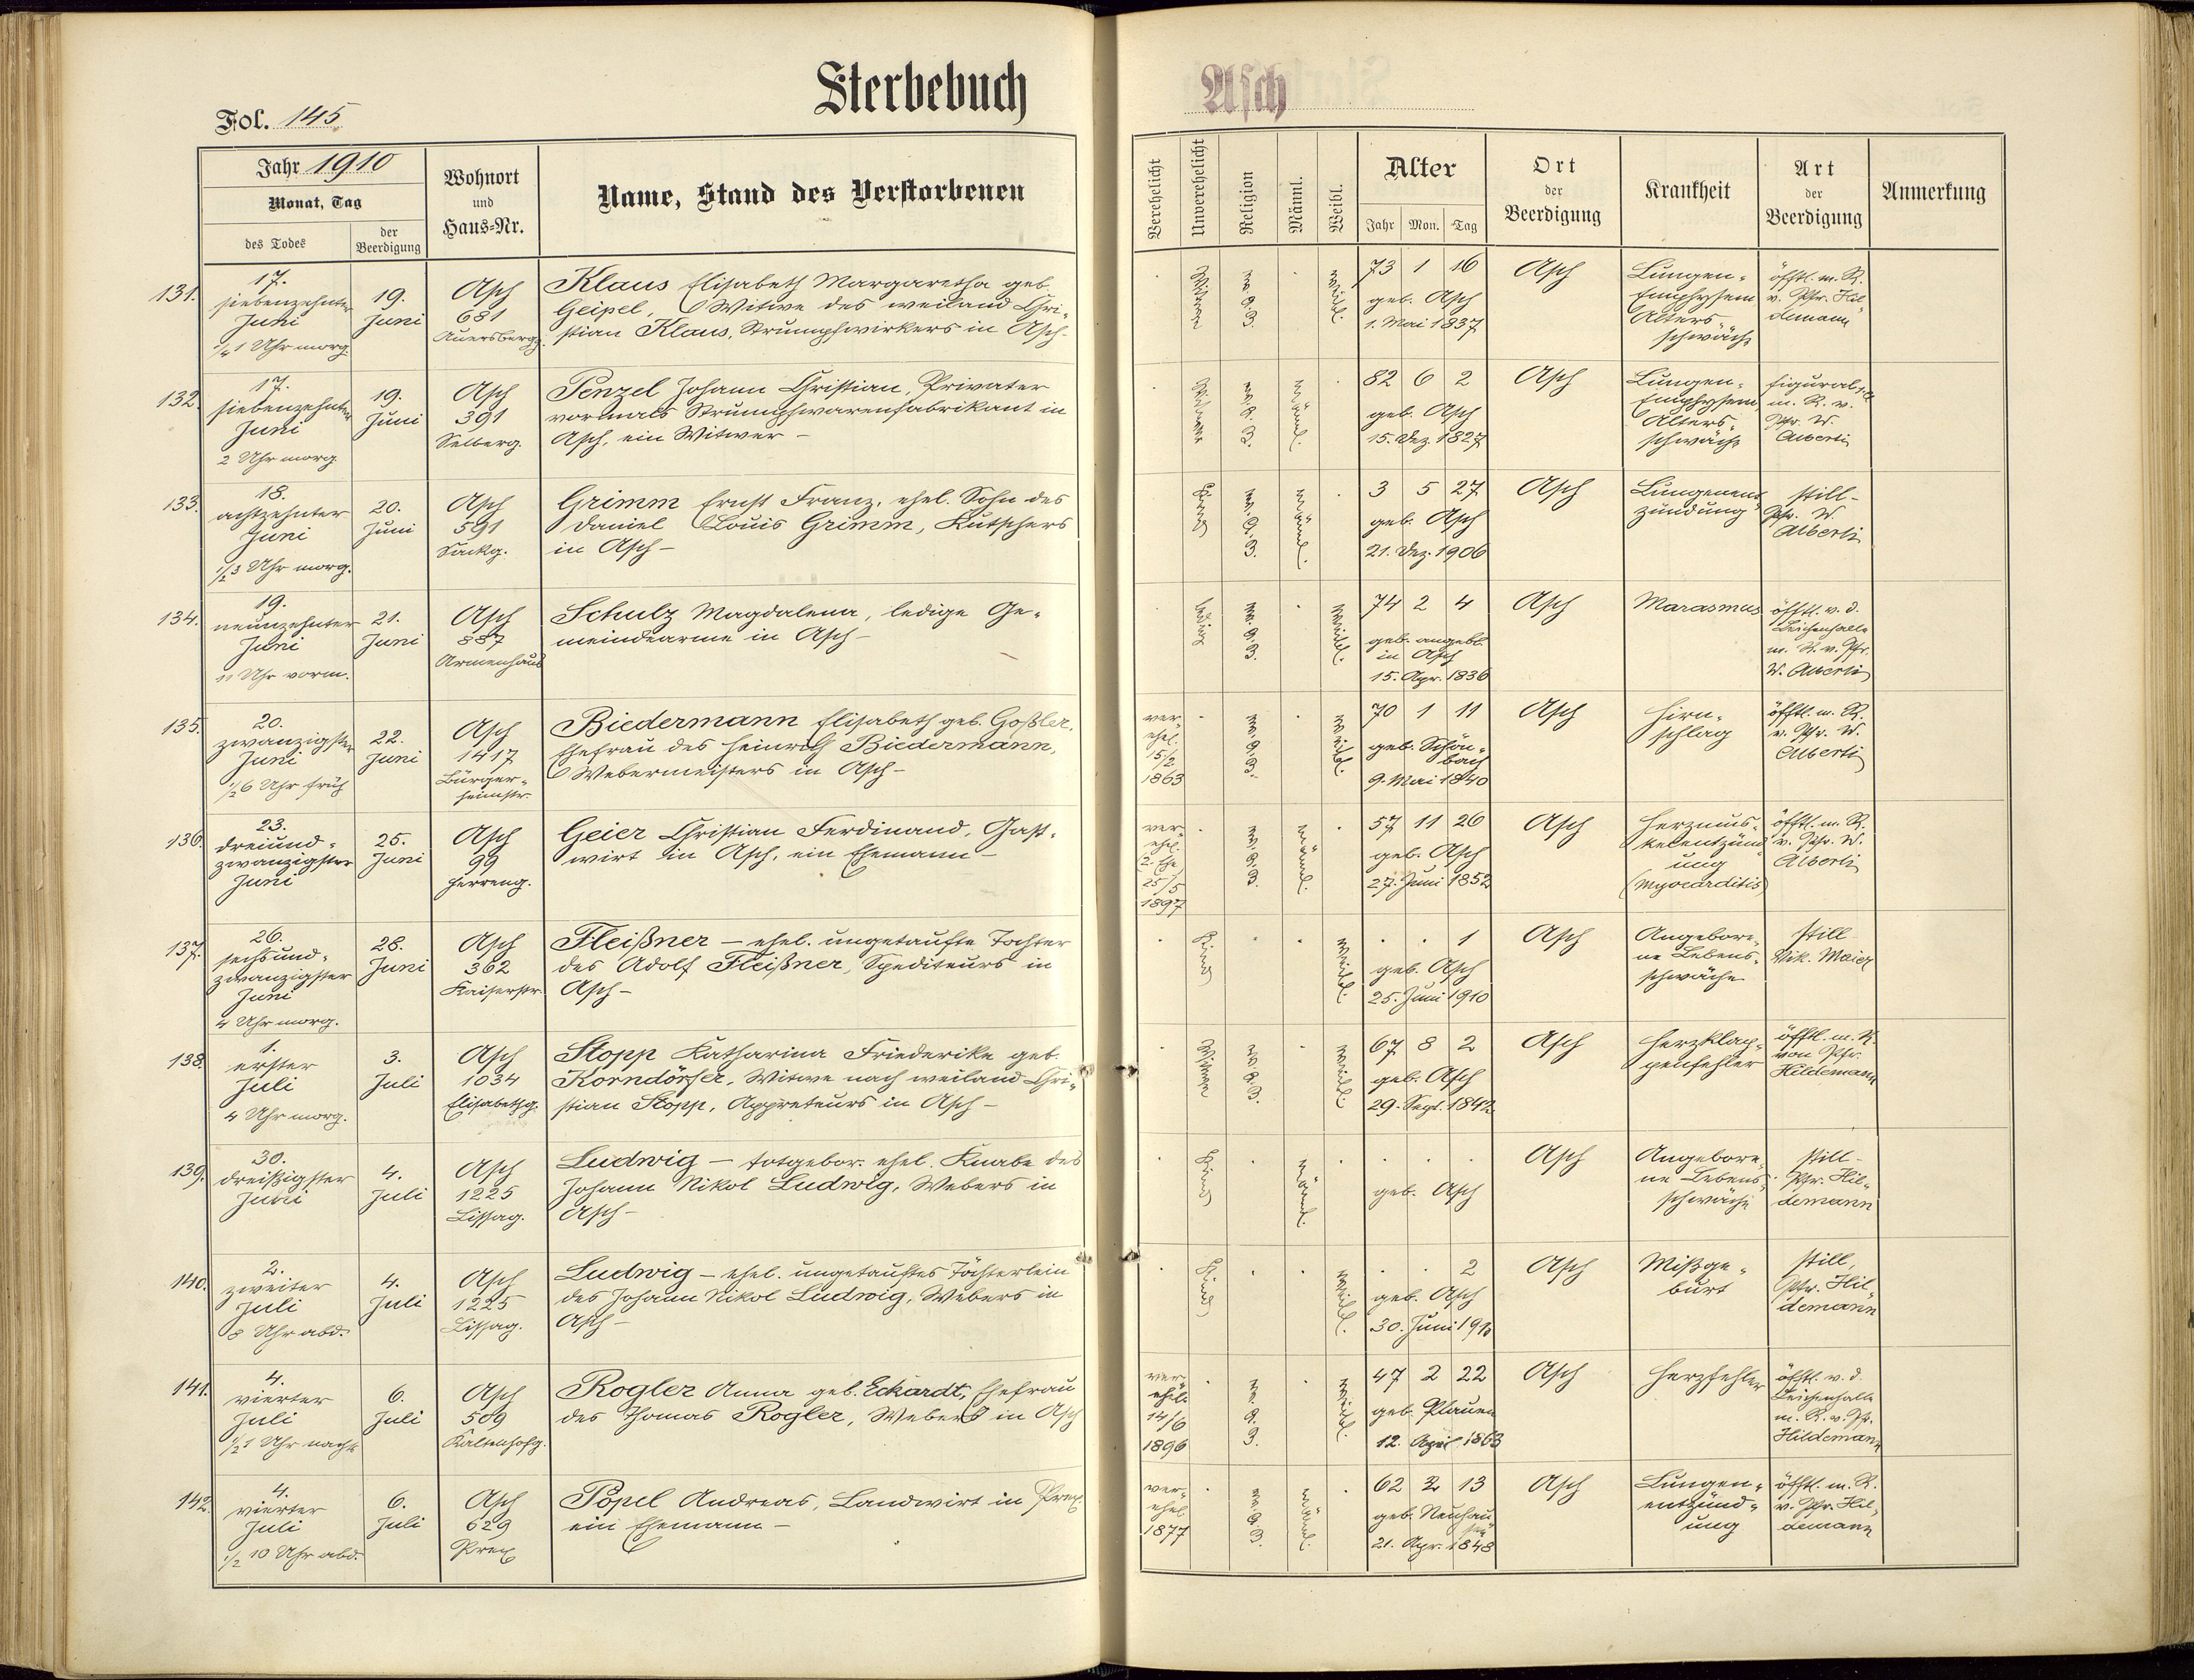 Sterbebuch
Asch
Fol. 145
Jahr 1910
Monat, Tag
des Todes
der Beerdigung
Wohnort
und
Haus-Nr.
Name, Stand des Verstorbenen
Verehelicht
Unverehelicht
Religion
Männl.
Weibl.
Alter
Jahr Mon. Tag
Ort
der
Beerdigung
Krankheit
Art
der
Beerdigung
Anmerkung
131.
17.
siebenzehnter
Juni
1/4 1 Uhr morg.
19.
Juni
Asch
681
Auersbergg.
Klaus Elisabeth Margaretha geb.
Geipel, Witwe des weiland Chri-
stian Klaus, Strumpfwirkers in Asch-
Witwe
ev. A. B.
weibl.
73 1 16
geb. Asch
1. Mai 1837
Asch
Lungen-
Emphysem
Alters
schwäche
öfftl. m. R.
v. Pfr. Hil-
demann
132.
17.
siebenzehnter
Juni
2 Uhr morg
19.
Juni
Asch
391
Selberg.
Penzel Johann Christian, Privater
vormals Strumpfwarenfabrikant in
Asch, ein Witwer -
Witwer
ev. A. B.
männl.
82 6 2
geb. Asch
15. Dez. 1827
Asch
Lungen-
Emphysem
Alters-
schwäche
figural
m. R. v.
Pfr. W.
Alberti
133.
18.
achtzehnter
Juni
1/2 3 Uhr morg.
20.
Juni
Asch
591
Sackg.
Grimm Ernst Franz, ehel. Sohn des
Daniel Louis Grimm, Kutschers
in Asch -
Kind
ev. A. B.
männl.
3 5 27
geb. Asch
21. Dez. 1906
Asch
Lungenent
zündung
still -
Pfr. W.
Alberti
134.
19.
neunzehnter
Juni
11 Uhr vorm.
21.
Juni
Asch
887
Armenhaus
Schulz Magdalena, ledige Ge-
meindearme in Asch -
ledig
ev. A. B.
weibl.
74 2 4
geb. angebl.
in Asch
15. Apr. 1836
Asch
Marasmus
öfftl. v. d.
Leichenhalle
m. R. v. Pfr.
W. Alberti
135.
20.
zwanzigster
Juni
1/2 6 Uhr früh
22.
Juni
Asch
1417
Bürger-
heimstr.
Biedermann Elisabeth geb. Goßler,
Ehefrau des Heinrich Biedermann,
Webermeisters in Asch -
ver-
ehel.
15/2
1863
ev. A. B.
weibl.
70 1 11
geb. Schön-
bach
9. Mai 1840
Asch
Hirn-
schlag
öfftl. m. R.
v. Pfr. W.
Alberti
136.
23.
dreiund-
zwanzigster
Juni
25.
Juni
Asch
99
Herreng.
Geier Christian Ferdinand, Gast-
wirt in Asch, ein Ehemann -
ver-
ehel.
2. Ehe
25/5
1897
ev. A. B.
männl.
57 11 26
geb. Asch
27. Juni 1852
Asch
Herzmus-
kelentzünd
ung
(Myocarditis)
öfftl. m. R.
v. Pfr. W.
Alberti
137.
26.
sechsund-
zwanzigster
Juni
4 Uhr morg.
28.
Juni
Asch
362
Kaiserstr.
Fleißner - ehel. ungetaufte Tochter
des Adolf Fleißner, Spediteurs in
Asch -
Kind
weibl.
1
geb. Asch
25. Juni 1910
Asch
Angebore-
ne Lebens-
schwäche
still
Vik. Maier
138.
1.
erster
Juli
4 Uhr morg.
3.
Juli
Asch
1034
Elisabethg.
Stopp Katharina Friederike geb.
Korndörfer, Witwe nach weiland Chri-
stian Stopp, Appreteurs in Asch -
Witwe
ev. A. B.
weibl.
67 8 2
geb. Asch
29. Sept. 1842
Asch
Herzklap-
penfehler
öfftl. m. R.
von Pfr.
Hildemann
139.
30.
dreißigster
Juni
4.
Juli
Asch
1225
Lissag.
Ludwig - totgebor. ehel. Knabe des
Johann Nikol Ludwig, Webers in
Asch -
Kind
männl.
geb. Asch
Asch
Angebore-
ne Lebens-
schwäche
still -
Pfr. Hil-
demann
140.
2.
zweiter
Juli
8 Uhr abd.
4.
Juli
Asch
1225
Lissag.
Ludwig - ehel. ungetauftes Töchterlein
des Johann Nikol Ludwig, Webers in
Asch -
Kind
weibl.
2
geb. Asch
30. Juni 1910
Asch
Mißge-
burt
still,
Pfr. Hil-
demann
141.
4.
vierter
Juli
1/2 1 Uhr nachts
6.
Juli
Asch
509
Kaltenhofg.
Rogler Anna geb. Eckardt, Ehefrau
des Thomas Rogler, Webers in Asch
ver-
ehel.
14/6
1896
ev. A. B.
weibl.
47 2 22
geb. Plauen
12. April 1863
Asch
Herzfehler
öfftl. v. d.
Leichenhalle
m. R. v. Pfr.
Hildemann
142.
4.
vierter
Juli
1/2 10 Uhr abd.
6.
Juli
Asch
629
Prex
Popel Andreas, Landwirt in Prex,
ein Ehemann -
ver-
ehel
1877
ev. A. B.
männl.
62 2 13
geb. Neuhau
sen
21. Apr. 1848
Asch
Lungen-
entzünd-
ung
öfftl. m. R.
v. Pfr. Hil-
demann